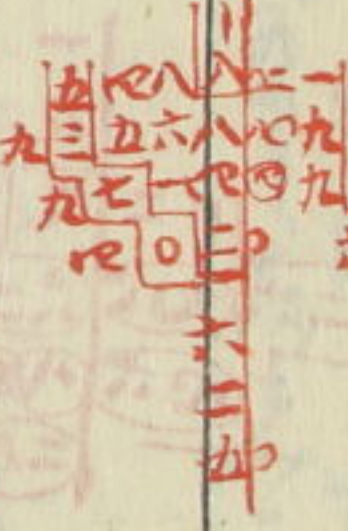 五四八八二一
九三五六八〇九
九七一四四九
四〇二
六
二
五